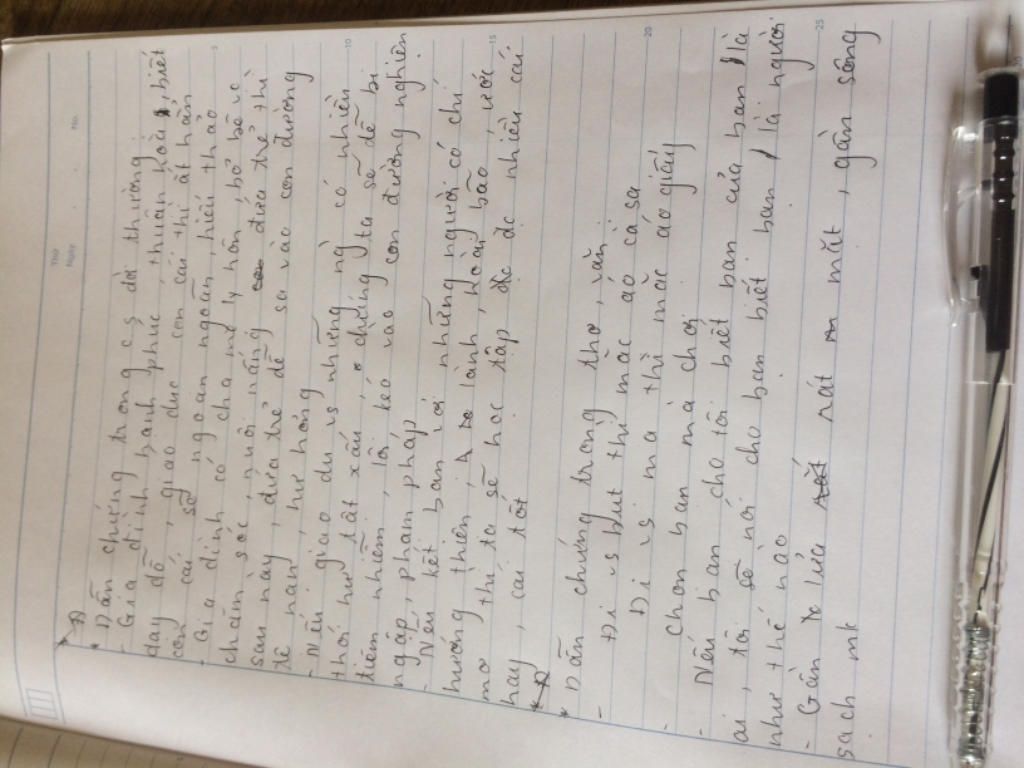 Thứ
Ngày
No.
* Đ
* Dẫn chứng trong c/s đời thường:
- Gia đình hạnh phúc, thuận hoà, biết
dạy dỗ, giáo dục con cái thì ắt hẳn
con cái sẽ ngoan ngoãn, hiếu thảo
- Gia đình có cha mẹ ly hôn, bỏ bê vc
chăm sóc, nuôi nấng đứa trẻ thì
sau này, đứa trẻ dễ sa vào con đường
tệ nạn, hư hỏng
- Nếu giao du vs những ng có nhiều
thói hư tật xấu, chúng ta sẽ dễ bị
tiêm nhiễm, lôi kéo vào con đường nghiện
ngập, phạm pháp
- Nếu kết bạn với những người có chí
hướng thiện, lành, hoài bão, ước
mơ thì ta sẽ học tập đc nhiều cái
hay, cái tốt
* Đ
* Dẫn chứng trong thơ, văn:
- Đi vs bụt thì mặc áo cà sa
Đi vs ma thì mặc áo giấy
- Chọn bạn mà chơi
- Nếu bạn cho tôi biết bạn của bạn là
ai, tôi sẽ nói cho bạn biết bạn là người
như thế nào
- Gần lửa rát mặt, gần sông
sạch mk
5
10
15
20
25